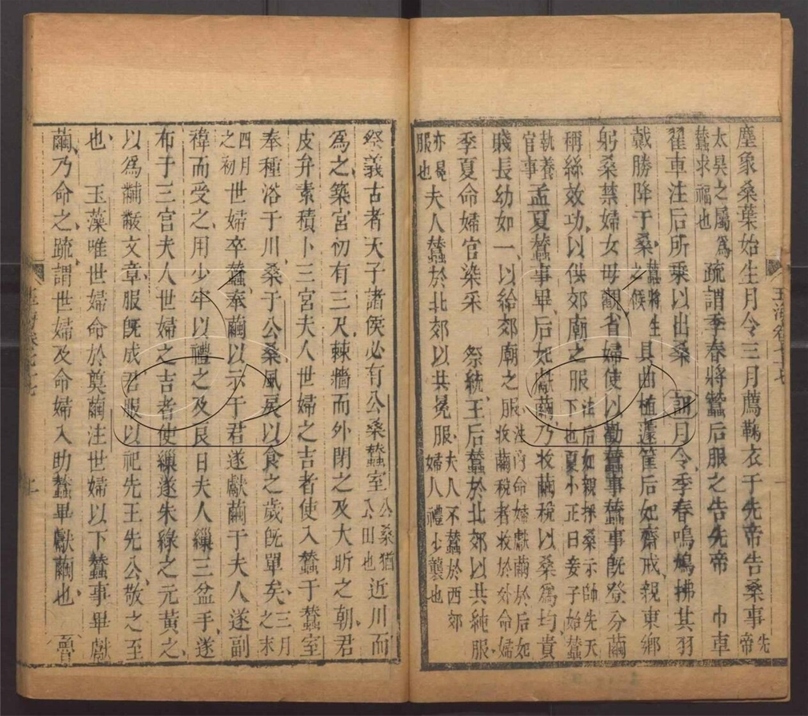 塵象桑葉始生月令三月薦鞠衣于先帝告桑事先帝
太昊之屬爲蠶求福也疏謂季春將蠶后服之告先帝　巾車
翟車注后所乘以出桑　月令季春鳴鳩拂其羽
戴勝降于桑蠶將生之候具曲植籧筐后妃齋戒親東鄉
躬桑禁婦女毋觀省婦使以勸蠶事蠶事既登分繭
稱絲效功以供郊廟之服注后妃親採桑示帥先天下也夏小正曰妾子始蠶
執養宮事孟夏蠶事畢后妃獻繭乃收繭稅以桑爲均貴
賤長幼如一以給郊廟之服注內命婦獻繭於后妃收繭稅者收於外命婦
季夏命婦官染采　祭統王后蠶於北郊以共純服
夫人蠶於北郊以共冕服夫人不蠶於西郊婦人禮少變也
祭義古者天子諸侯必有公桑蠶室公桑猶公田也近川而
爲之築宮仞有三尺棘牆而外閉之及大昕之朝君
皮弁素積卜三宮夫人世婦之吉者使入蠶于蠶室
奉種浴于川桑于公桑風戾以食之歲既單矣三月之末
四月之初世婦卒蠶奉繭以示于君遂獻繭于夫人遂副
褘而受之用少牢以禮之及良日夫人繅三盆手遂
布于三宮夫人世婦之吉者使繅遂朱綠之元黃之
以爲黼黻文章服既成君服以祀先王先公敬之至
也　玉藻唯世婦命於奠繭注世婦以下蠶事畢獻
繭乃命之疏謂世婦及命婦入助蠶畢獻繭也
玉海卷七十七